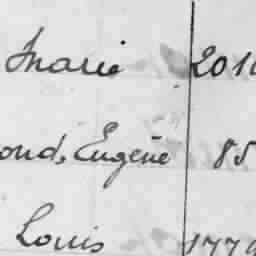 Marie 201
ond, Eugène 85
Louis 1779